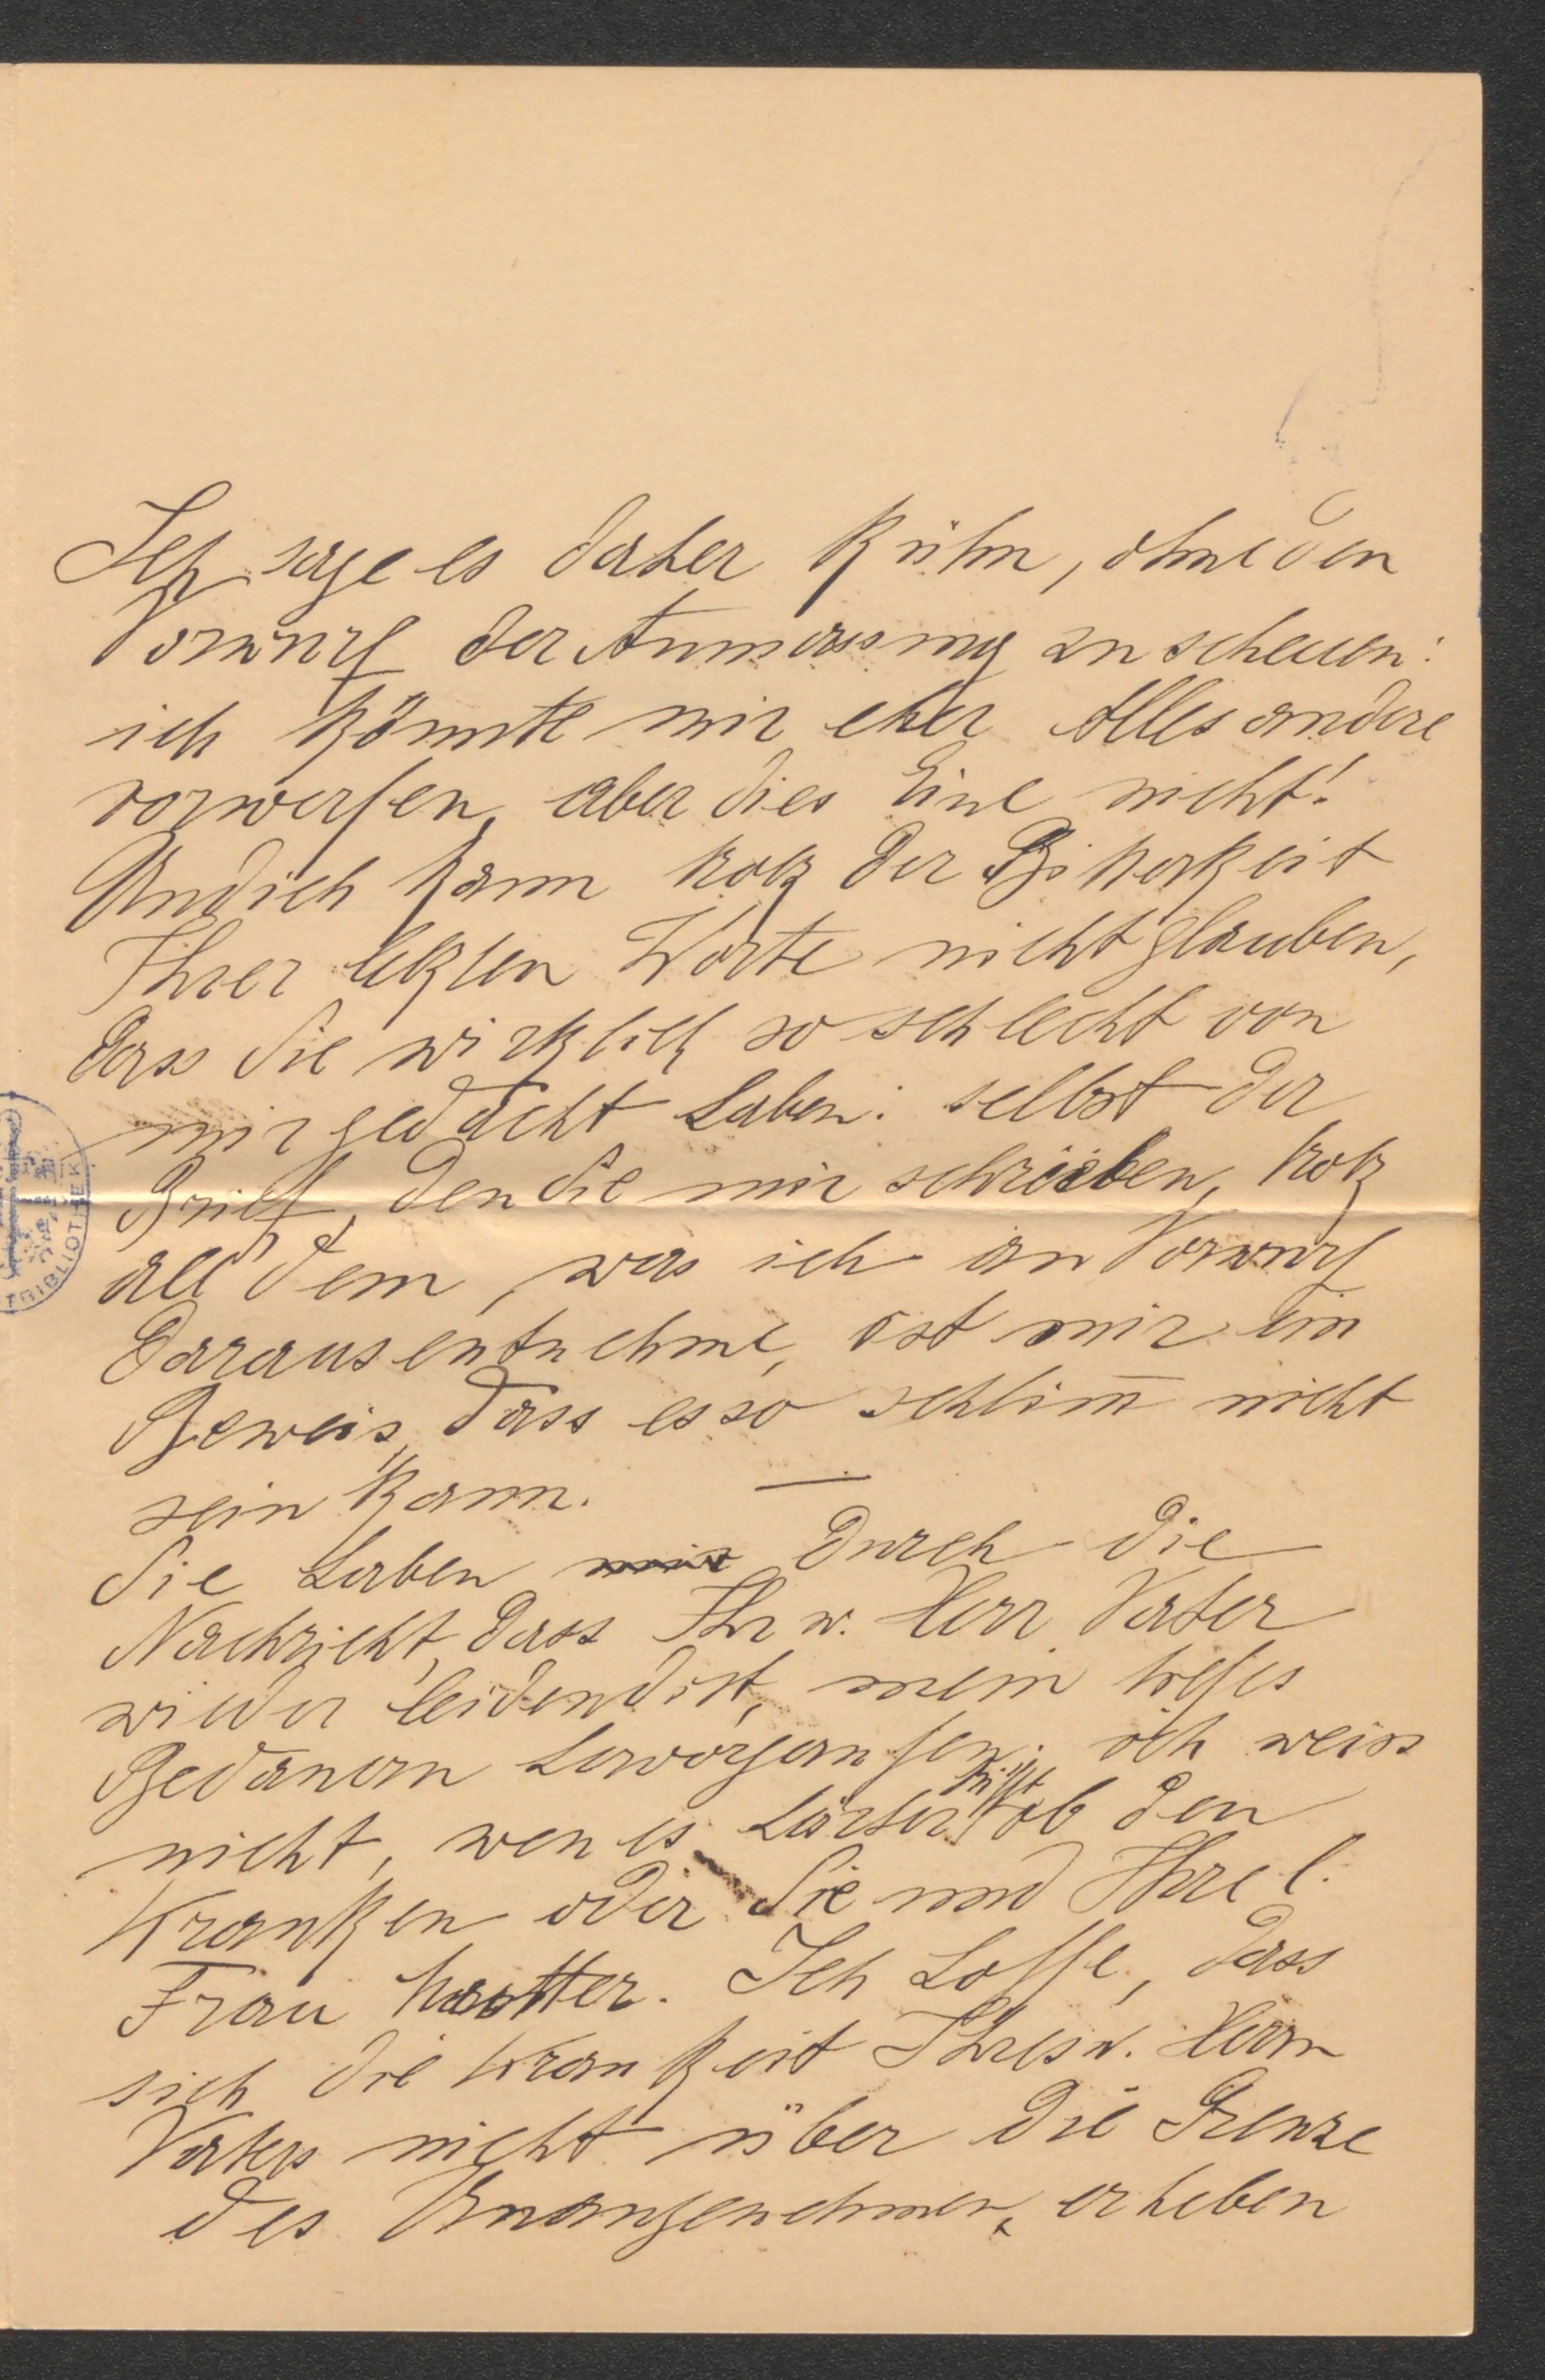 Ich sage es daher kühn, ohne den
Vorwurf der Anmassung zu scheuen:
ich könnte mir eher Alles andere
vorwerfen, aber dies Eine nicht!
Und ich kann trotz der Bitterkeit
Ihrer letzten Worte nicht glauben,
dass Sie wirklich so schlecht von
mir gedacht haben: selbst der
Brief, den Sie mir schrieben, trotz
all' dem, was ich an Vorwurf
daraus entnehme, ist mir ein
Beweis, dass es so schlim̅ nicht
sein kann. —
Sie haben mir durch die
Nachricht, dass Ihr w. Herr Vater
wieder leidend ist, mein tiefes
Bedauern hervorgerufen; ich weiss
nicht, wen es härter trifft ob den
Kranken oder Sie und Ihre l.
Frau Mutter. Ich hoffe, dass
sich die Krankheit Ihres w. Herrn
Vaters nicht über die Grenze
des Unangenehmen, erheben
TBIBLIOTHEK